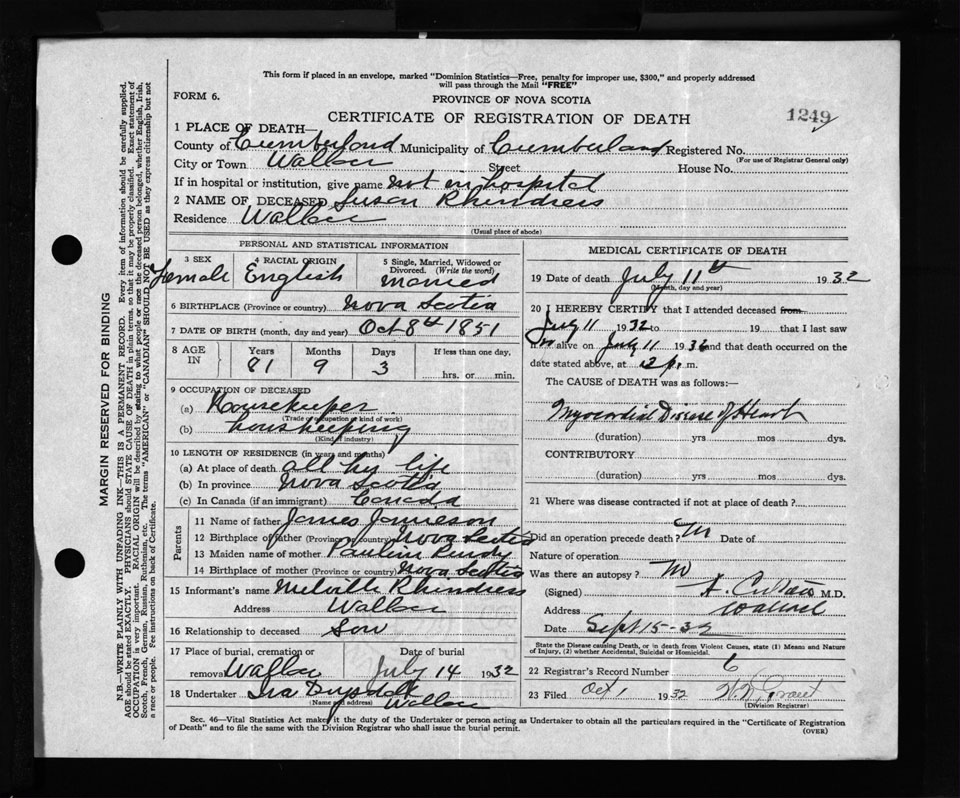 This form if placed in an envelope, marked "Dominion Statistics—Free, penalty for improper use, $300," and properly addressed
will pass through the Mail "FREE"
FORM 6.
PROVINCE OF NOVA SCOTIA
CERTIFICATE OF REGISTRATION OF DEATH
1249
1 PLACE OF DEATH—
County of Cumberland Municipality of Cumberland Registered No.
(For use of Registrar General only)
City or Town Wallace Street House No.
If in hospital or institution, give name not in hospital
2 NAME OF DECEASED Susan Rhindress
Residence Wallace
(Usual place of abode)
PERSONAL AND STATISTICAL INFORMATION
3 SEX 4 RACIAL ORIGIN 5 Single, Married, Widowed or
Divorced. (Write the word)
Female English Married
6 BIRTHPLACE (Province or country) Nova Scotia
7 DATE OF BIRTH (month, day and year) Oct 8th 1851
8 AGE IN Years Months Days If less than one day,
81 9 3 hrs. or min.
9 OCCUPATION OF DECEASED
(a) Housekeeper
(Trade or occupation or kind of work)
(b) housekeeping
(Kind of industry)
10 LENGTH OF RESIDENCE (in years and months)
(a) At place of death all her life
(b) In province Nova Scotia
(c) In Canada (if an immigrant) Canada
Parents
11 Name of father James Jamieson
12 Birthplace of father (Province or country) Nova Scotia
13 Maiden name of mother Pauline Purdy
14 Birthplace of mother (Province or country) Nova Scotia
15 Informant's name Melville Rhindress
Address Wallace
16 Relationship to deceased Son
17 Place of burial, cremation or Date of burial
removal Wallace July 14 1932
18 Undertaker Ira Drysdale
(Name and address) Wallace
MEDICAL CERTIFICATE OF DEATH
19 Date of death July 11th 1932
(Month, day and year)
20 I HEREBY CERTIFY that I attended deceased from
July 11 1932 to 19 that I last saw
alive on July 11 1932 and that death occurred on the
date stated above, at 12 p. m.
The CAUSE OF DEATH was as follows:
Myocardial Disease of Heart
(duration) yrs mos dys.
CONTRIBUTORY
(duration) yrs mos dys.
21 Where was disease contracted if not at place of death?
Did an operation precede death? no Date of
Nature of operation
Was there an autopsy? no
(Signed) M.D.
Address Wallace
Date Sept 15-32
State the Disease causing Death, or in death from Violent Causes, state (1) Means and Nature
of Injury, (2) whether Accidental, Suicidal or Homicidal.
22 Registrar's Record Number 6
23 Filed Oct 1 1932
(Division Registrar)
Sec. 46—Vital Statistics Act makes it the duty of the Undertaker or person acting as Undertaker to obtain all the particulars required in the "Certificate of Registration
of Death" and to file the same with the Division Registrar who shall issue the burial permit.
(OVER)
MARGIN RESERVED FOR BINDING
N.B.—WRITE PLAINLY WITH UNFADING INK—THIS IS A PERMANENT RECORD. Every item of information should be carefully supplied.
AGE should be stated EXACTLY. PHYSICIANS should STATE CAUSE OF DEATH in plain terms, so that it may be properly classified. Exact statement of
OCCUPATION is very important. RACIAL ORIGIN will be described by stating to what people or race the deceased person belonged, whether English, Irish,
Scotch, French, German, Russian, Ruthenian, etc. The terms "AMERICAN" or "CANADIAN" SHOULD NOT BE USED as they express citizenship but not
a race or people. See instructions on back of Certificate.